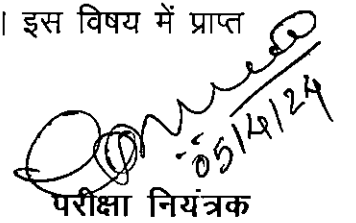 । इस विषय में प्राप्त
05/4/24
परीक्षा नियंत्रक